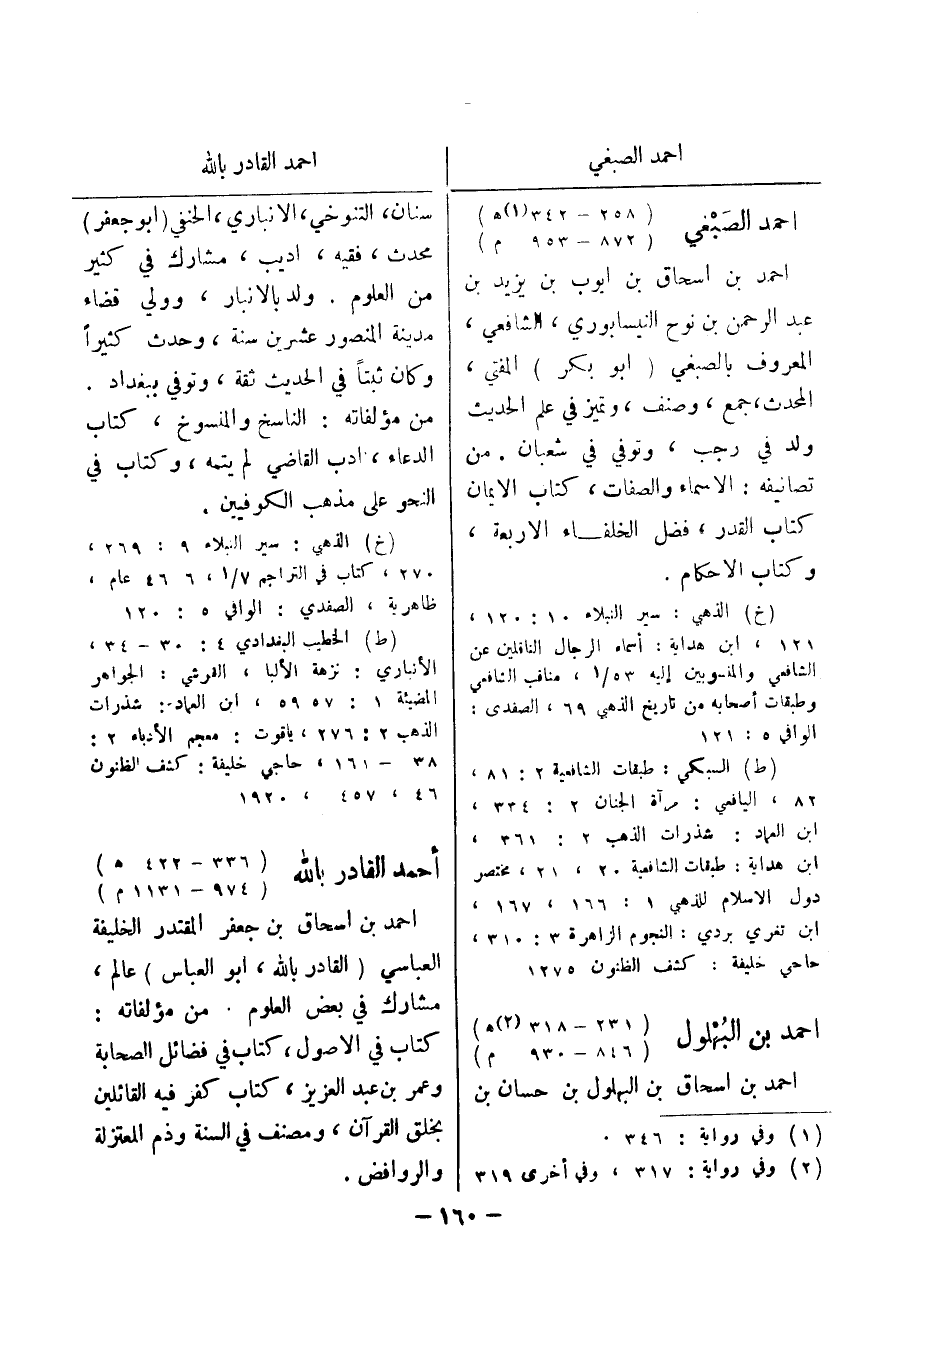 احمد الصبغي
احمد الصَبْغي (٢٥٨ – ٣٤٢(١)ھ)
(٨٧٢ – ٩٥٣ م)
احمد بن اسحاق بن ايوب بن يزيد بن
عبد الرحمن بن نوح النيسابوري ، الشافعي ،
المعروف بالصبغي ( ابو بكر ) المفتي ،
المحدث،جمع ، وصنف ، وتميز في علم الحديث
ولد في رجب ، وتوفي في شعبان . من
تصانيفه : الاسماء والصفات ، كتاب الايمان
كتاب القدر ، فضل الخلفــاء الاربعة ،
وكتاب الاحكام .
(خ) الذهبي : سير النبلاء ١٠ : ١٢٠ ،
١٢١ ، ابن هداية : أسماء الرجال الناقلين عن
الشافعي والمنسوبين إليه ١/٥٣ ، مناقب الشافعي
وطبقات أصحابه من تاريخ الذهبي ٦٩ ، الصفدى :
الوافي ٥ : ١٢١
(ط) السبكي : طبقات الشافعية ٢ : ٨١ ،
٨٢ ، اليافعي : مرآة الجنان ٢ : ٣٣٤ ،
ابن العماد : شذرات الذهب ٢ : ٣٦١ ،
ابن هداية : طبقات الشافعية ٢٠ ، ٢١ ، مختصر
دول الاسلام للذهبي ١ : ١٦٦ ، ١٦٧ ،
ابن تغري بردي : النجوم الزاهرة ٣ : ٣١٠ ،
حاجي خليفة : كشف الظنون ١٢٧٥
احمد بن البُهْلول (٢٣١ – ٣١٨ (٢)ھ)
(٨٤٦ – ٩٣٠ م)
احمد بن اسحاق بن البهلول بن حسان بن
(١) وفي رواية : ٣٤٦ .
(٢) وفي رواية : ٣١٧ ، وفي أخرى ٣١٩
احمد القادر بالله
سنان، التنوخي،الانباري،الحنفي(ابوجعفر)
محدث ، فقيه ، اديب ، مشارك في كثير
من العلوم . ولد بالانبار ، وولي قضاء
مدينة المنصور عشرين سنة ، وحدث كثيراً
وكان ثبتاً في الحديث ثقة ، وتوفي ببغداد .
من مؤلفاته : الناسخ والمنسوخ ، كتاب
الدعاء ، ادب القاضي لم يتمه ، وكتاب في
النحو على مذهب الكوفيين .
(خ) الذهبي : سير النبلاء ٩ : ٢٦٩ ،
٢٧٠ ، كتاب في التراجم ١/٧ ، ٦ ٤٦ عام ،
ظاهرية ، الصفدي : الوافي ٥ : ١٢٠
(ط) الخطيب البغدادي ٤ : ٣٠ – ٣٤ ،
الأنباري : نزهة الألبا ، القرشي : الجواهر
المضيئة ١ : ٥٧ ٥٩ ، ابن العماد : شذرات
الذهب ٢ : ٢٧٦ ، ياقوت : معجم الأدباء ٢ :
٣٨ – ١٦١ ، حاجي خليفة : كشف الظنون
٤٦ ، ٤٥٧ ، ١٩٢٠
أحمد القادر بالله (٣٣٦ – ٤٢٢ ھ)
(٩٧٤ – ١١٣١ م)
احمد بن اسحاق بن جعفر المقتدر الخليفة
العباسي ( القادر بالله ، ابو العباس ) عالم ،
مشارك في بعض العلوم . من مؤلفاته :
كتاب في الاصول ، كتاب في فضائل الصحابة
وعمر بن عبد العزيز ، كتاب كفر فيه القائلين
بخلق القرآن ، ومصنف في السنة وذم المعتزلة
والروافض .
– ١٦٠ –